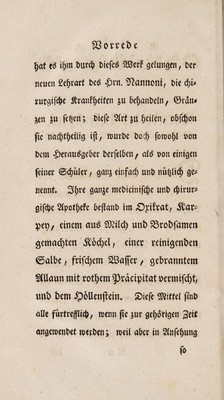 Vorrede
hat es ihm durch dieses Werk gelungen, der
neuen Lehrart des Hrn. Nannoni, die chi-
rurgische Krankheiten zu behandeln, Grän-
zen zu setzen; diese Art zu heilen, obschon
sie nachtheilig ist, wurde doch sowohl von
dem Herausgeber derselben, als von einigen
seiner Schüler, ganz einfach und nützlich ge-
nennt. Ihre ganze medicinische und chirur-
gische Apotheke bestand im Oxikrat, Kar-
pey, einem aus Milch und Brodsamen
gemachten Köchel, einer reinigenden
Salbe, frischem Wasser, gebranntem
Allaun mit rothem Präcipitat vermischt,
und dem Höllenstein. Diese Mittel sind
alle fürtrefflich, wenn sie zur gehörigen Zeit
angewendet werden; weil aber in Ansehung
so